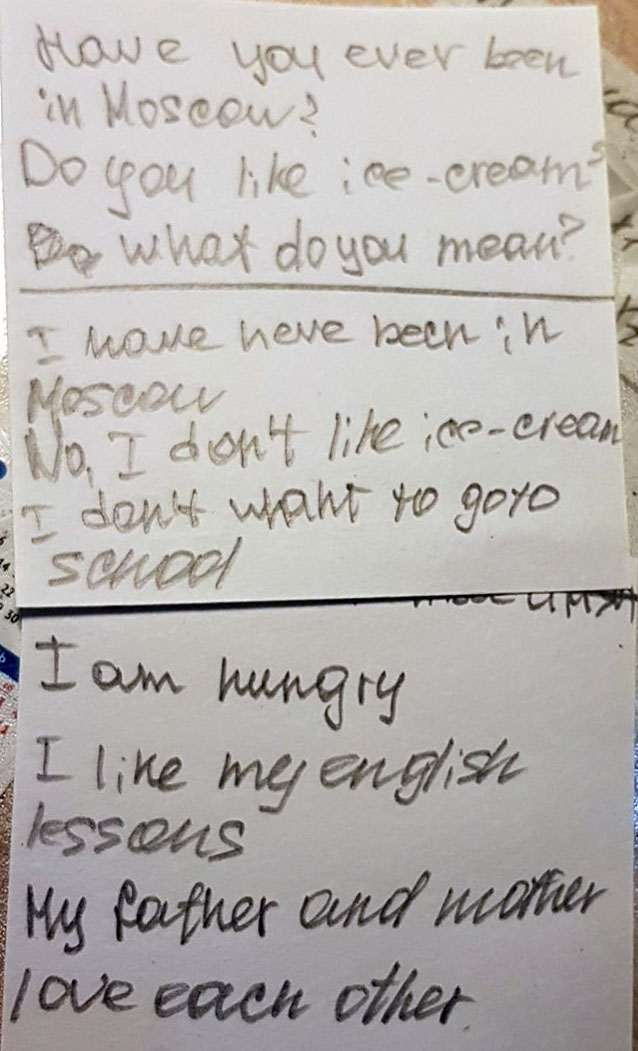 Have you ever been
in Moscow?
Do you like ice-cream?
What do you mean?
I have neve been in
Moscow
No, I don't like ice-cream
I don't want to goto
school
I am hungry
I like my english
lessons
My father and mother
love each other